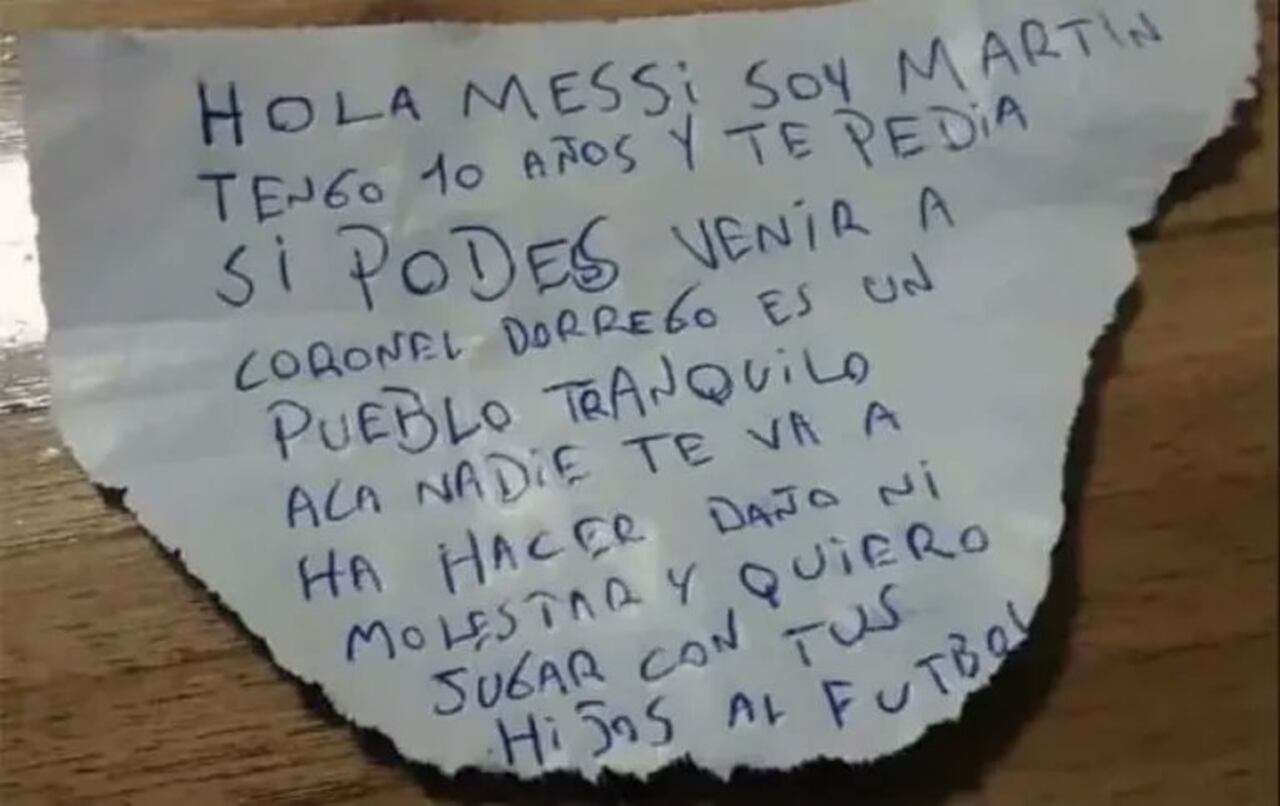 HOLA MESSi SOY MARTiN
TENGO 10 AÑOS Y TE PEDiA
Si PODES VENiR A
CORONEL DORREGO ES UN
PUEBLO TRANQUiLO
ACA NADiE TE VA A
HA HACER DAÑO Ni
MOLESTAR Y QUiERO
JUGAR CON TUS
HiJOS AL FUTBOL